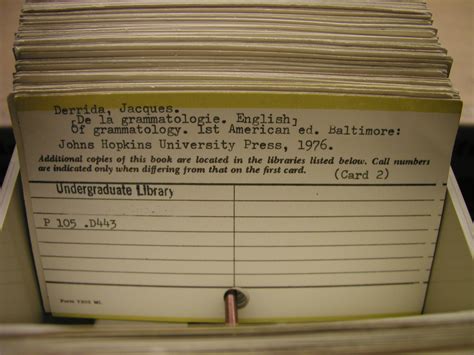 Derrida, Jacques.
[De la grammatologie. English]
Of grammatology. 1st American ed. Baltimore:
Johns Hopkins University Press, 1976.
Additional copies of this book are located in the libraries listed below. Call numbers
are indicated only when differing from that on the first card.
(Card 2)
Undergraduate Library
P 105 .D443